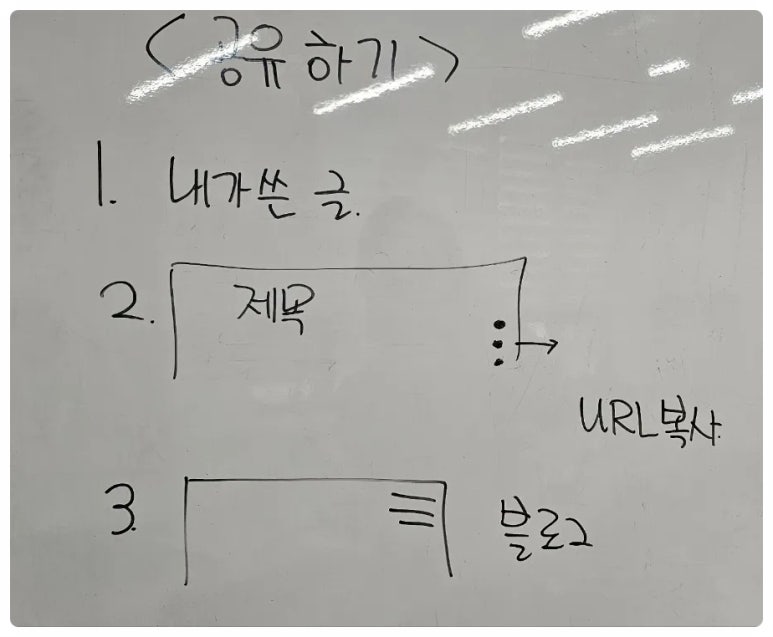 <공유하기>
1. 내가쓴 글.
2. 제목
URL복사
3. 블로그